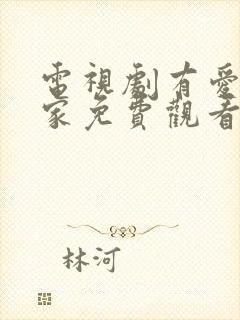 電視劇有愛
家免費觀看
林河